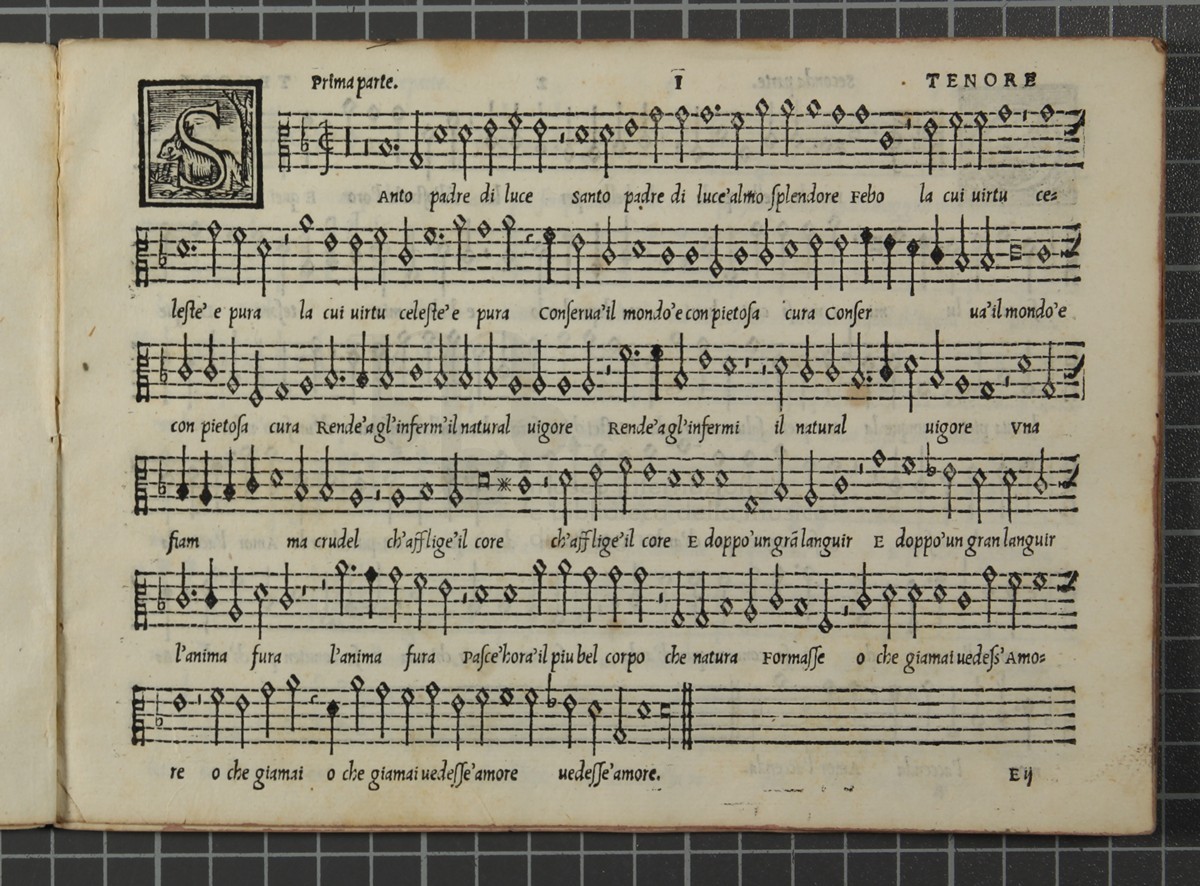 Prima parte. I TENORE
SAnto padre di luce Santo padre di luce'almo splendore Febo la cui uirtu ce=
leste' e pura la cui uirtu celeste' e pura Conserua'il mondo'e con pietosa cura Conser ua'il mondo'e
con pietosa cura Rende'a gl'inferm'il natural uigore Rende'a gl'infermi il natural uigore Vna
fiam ma crudel ch'afflige'il core ch'afflige'il core E doppo'un grā languir E doppo'un gran languir
l'anima fura l'anima fura Pasce'hora'il piu bel corpo che natura Formasse o che giamai uedess'Amo=
re o che giamai o che giamai uedesse'amore uedesse'amore.
E ij